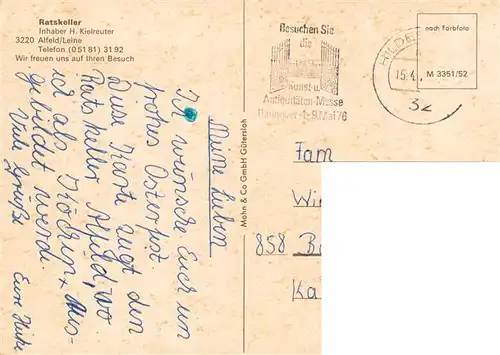 Ratskeller
Inhaber H. Kielreuter
3220 Alfeld/Leine
Telefon (0 51 81) 31 92
Wir freuen uns auf Ihren Besuch
Meine Lieben
Ich wünsche Euch ein
frohes Osterfest.
Diese Karte zeigt den
Ratskeller Alfeld, wo
ich als Köchin + Aus-
gebildet werd.
Viele Grüße Eure Heike
Mohn & Co GmbH Gütersloh
Besuchen Sie
die
Kunst-u.
Antiquitäten-Messe
Hannover 1.-9. Mai 76
HILDE
15.4.
32
nach Farbfoto
M 3351/52
Fam
Wi
858 B
Ka